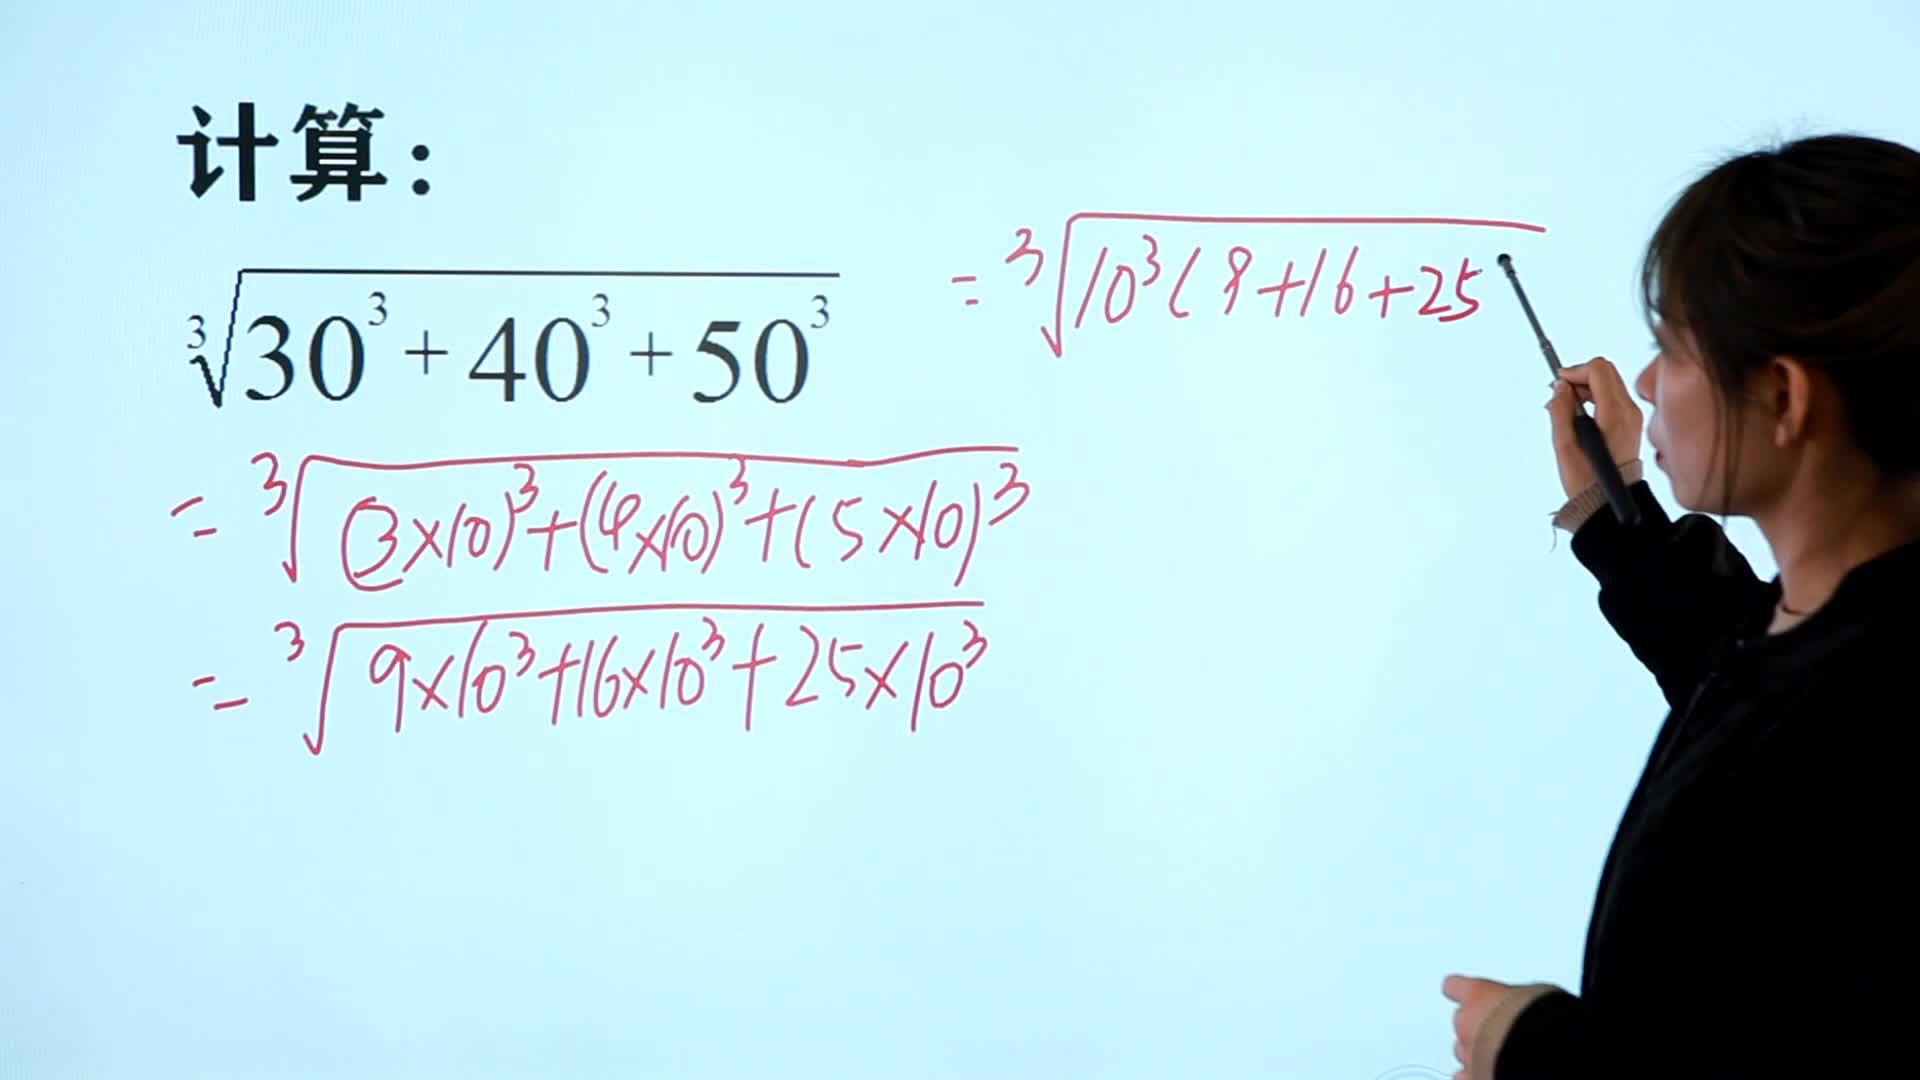 计算：
∛(30³ + 40³ + 50³)
= ∛((3×10)³+(4×10)³+(5×10)³)
= ∛(9×10³+16×10³+25×10³)
= ∛(10³(9+16+25